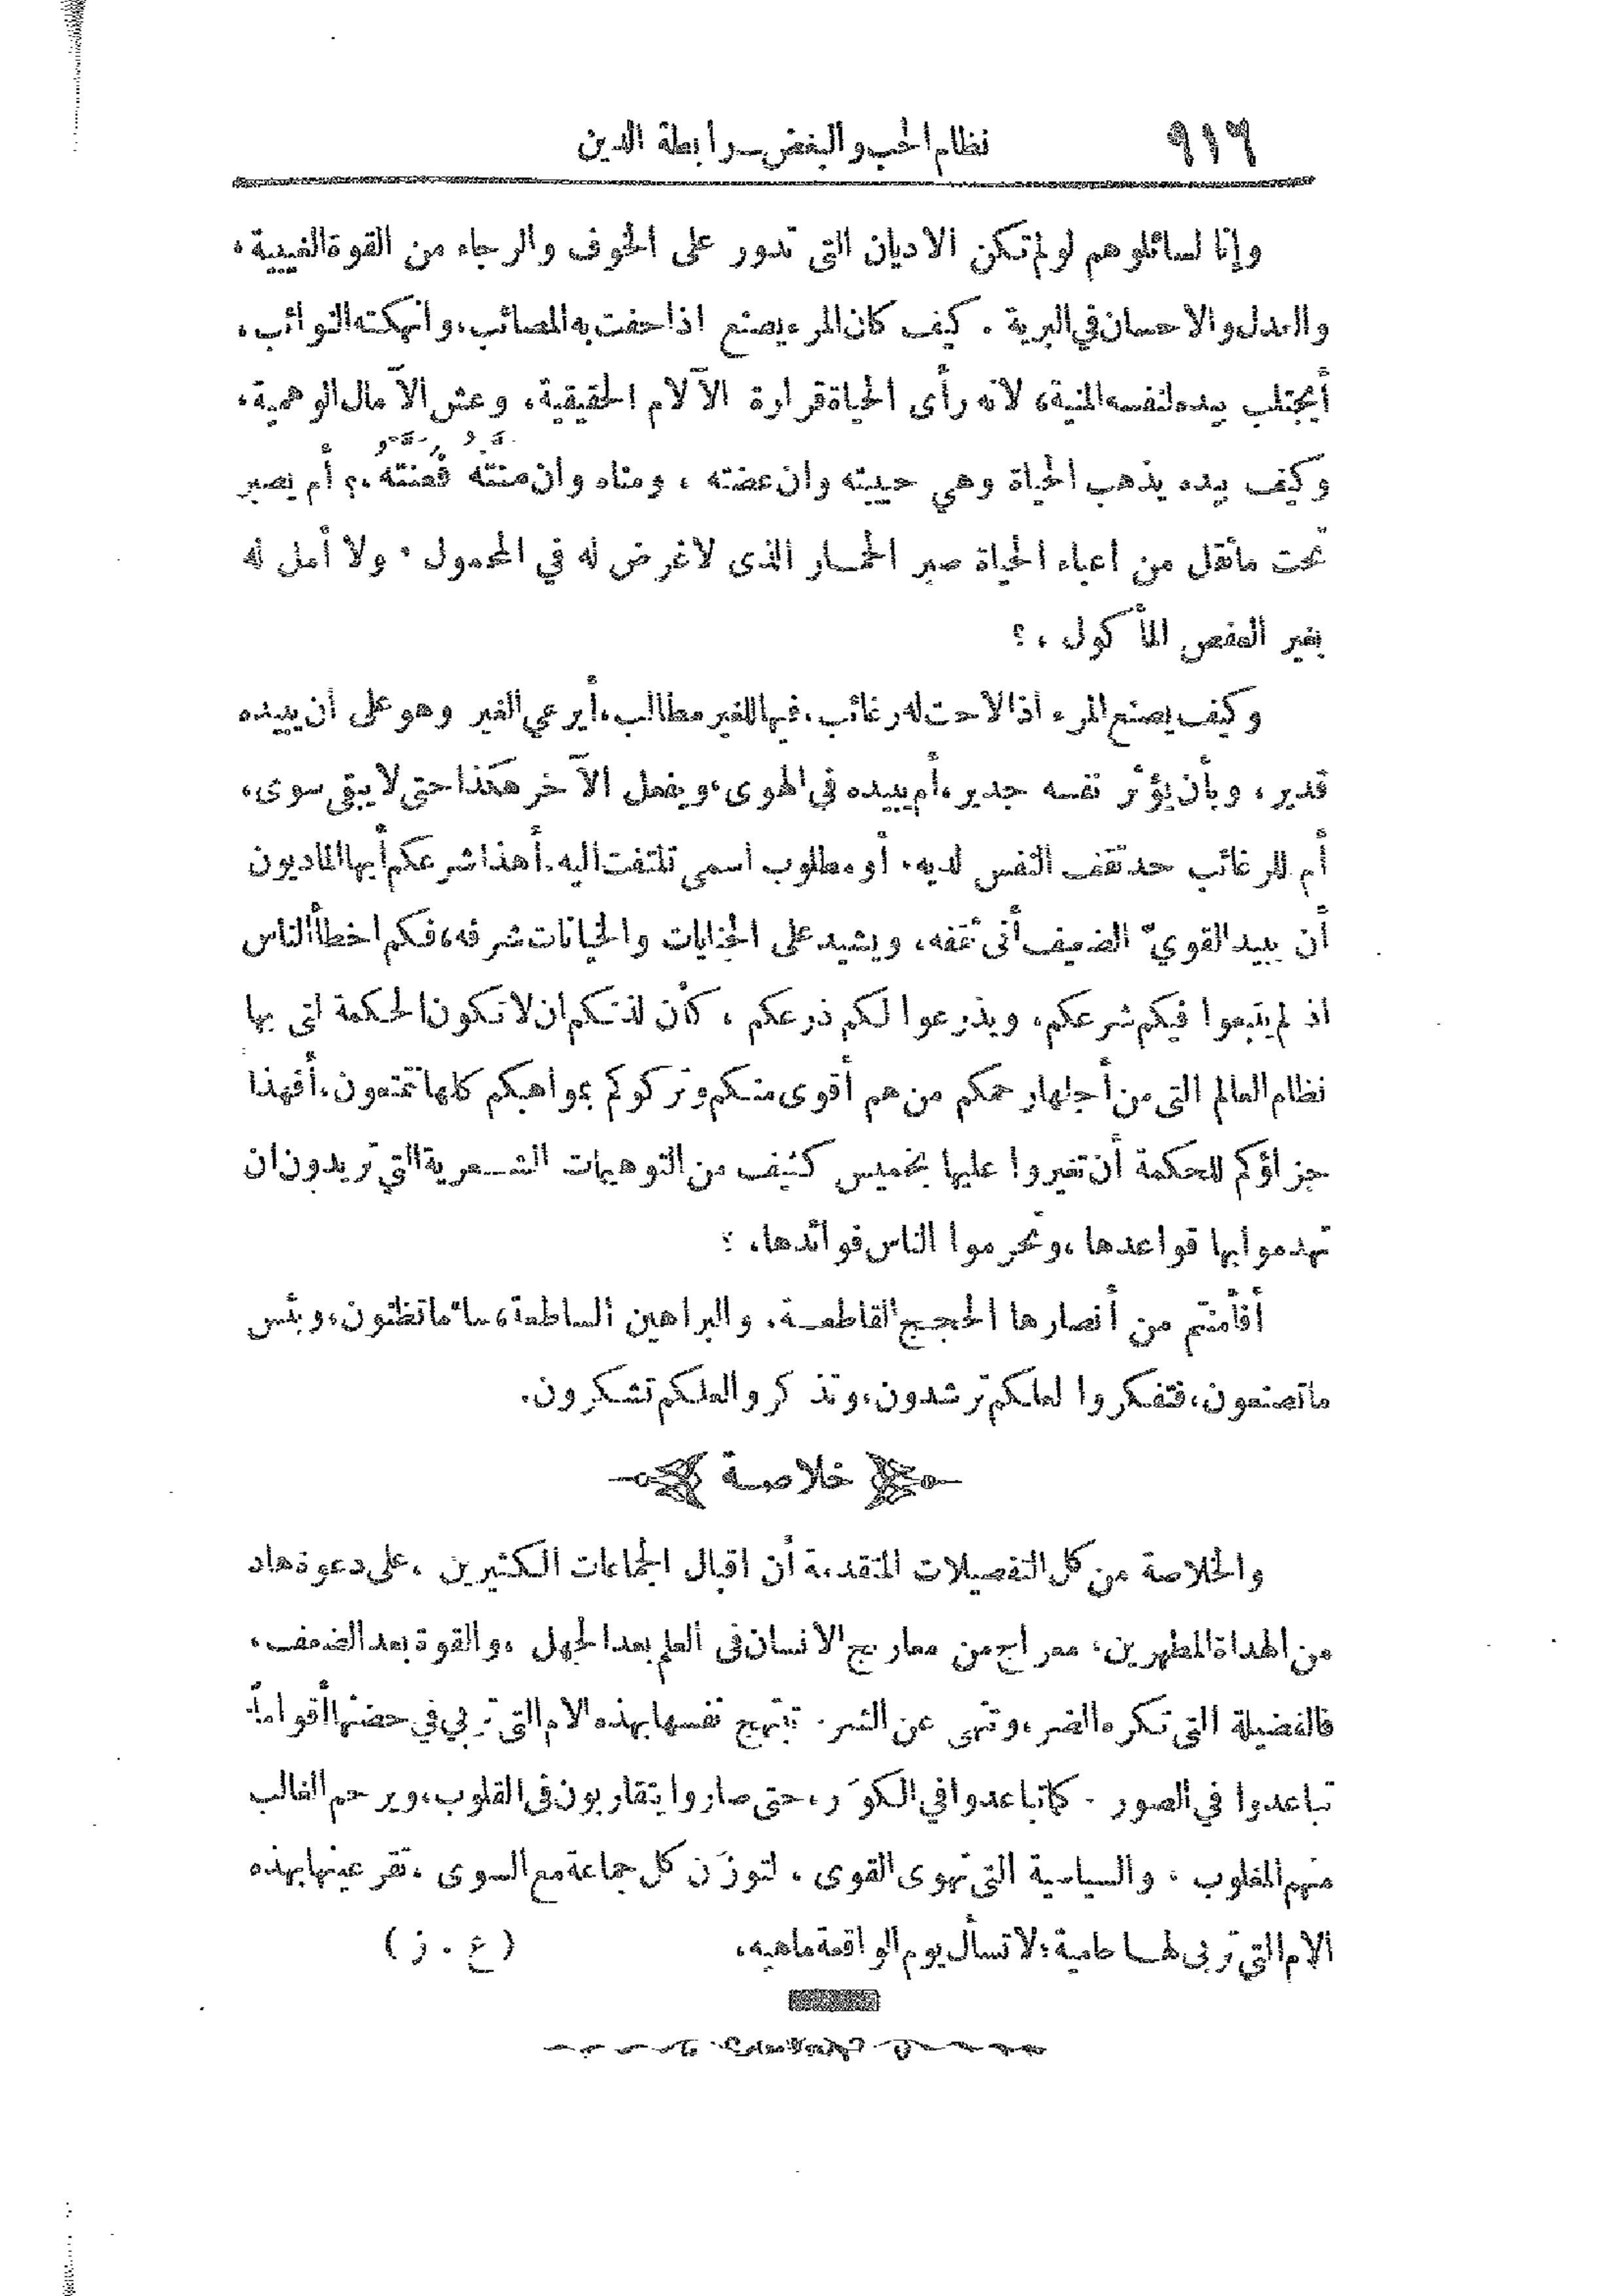 ٩١٦ نظام الحب والبغض ــ رابطة الدين
وإنا لسائلوهم لو لم تكن الاديان التى تدور على الخوف والرجاء من القوة الغيبية،
والعدل والاحسان في البرية . كيف كان المرء يصنع اذا حفت به المصائب، وانهكته النوائب،
أيجتلب بيده لنفسه المنية، لانه رأى الحياة قرارة الآلام الحقيقية، وعش الآمال الوهمية،
وكيف بيده يذهب الحياة وهي حبيبته وان عضته ، ومناه وان منته فعنته ،؟ أم يصبر
تحت ما ثقل من اعباء الحياة صبر الحمار الذى لا غرض له في المحمول ، ولا أمل له
بغير العفص المأكول ، ؟
وكيف يصنع المرء اذا لاحت له رغائب، فيها للغير مطالب، أيرعي الغير وهو على أن يبيده
قدير ، وبأن يؤثر نفسه جدير، أم يبيده في الهوى، ويفعل الآخر هكذا حتى لا يبقى سوى،
أم للرغائب حد تقف النفس لديه، أو مطلوب اسمى تلتفت اليه. أهذا شرعكم أيها الماديون
أن يبيد القويّ الضعيف أنى ثقفه، ويشيد على الجنايات والخيانات شرفه، فكم اخطأ الناس
اذ لم يتبعوا فيكم شرعكم، ويذرعوا لكم ذرعكم ، كأن لذتكم ان لا تكون الحكمة لتى بها
نظام العالم التى من أجلها رحمكم من هم أقوى منكم وتركوكم بمواهبكم كلها تمتعون، أفهذا
جزاؤكم للحكمة أن تغيروا عليها بخميس كثيف من التوهيمات الشــعرية التي تريدون ان
تهدموا بها قواعدها ، وتحرموا الناس فوائدها، ؟
أفأمنتم من أنصارها الحجج القاطعــة، والبراهين الساطعة، ساء ما تظنون، وبئس
ما تصنعون، فتفكروا لعلكم ترشدون، وتذكروا لعلكم تشكرون.
خلاصــة
والخلاصة من كل التفصيلات المتقدمة أن اقبال الجماعات الكثيرين ، على دعوة هاد
من الهداة المطهرين، معراج من معاريج الانسان فى العلم بعد الجهل ، والقوة بعد الضعف،
فالفضيلة التى تكره الضر، وتنهى عن الشر. تبتهج نفسها بهذه الامم التى تربي في حضنها أقواماً
تباعدوا في الصور . كما تباعدوا في الكوَر، حتى صاروا يتقاربون فى القلوب، ويرحم الغالب
منهم المغلوب . والسياسية التى تهوى القوى ، لتوزَن كل جماعة مع السوى ، تقر عينها بهذه
الامم التي تربى لهــا حامية؛ لا تسأل يوم الواقعة ماهيه، (ع . ز)